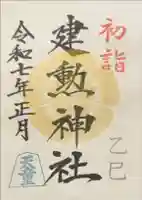 初詣
乙巳
建勲神社
令和七年正月
天童